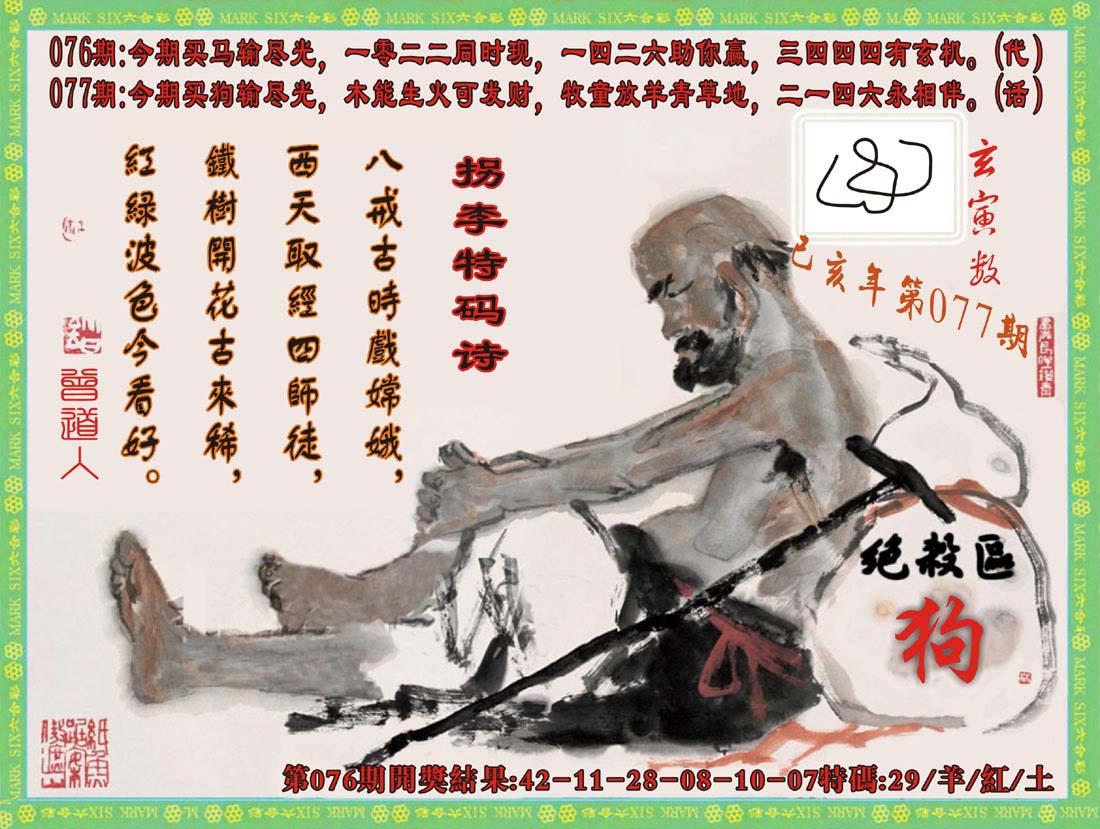 MARK SIX六合彩
076期:今期买马输尽光，一零二二同时现，一四二六助你赢，三四四四有玄机。(代)
077期:今期买狗输尽光，木能生火可发财，牧童放羊青草地，二一四六永相伴。(话)
玄寅数
己亥年第077期
拐李特码诗
八戒古時戲嫦娥，
西天取經四師徒，
鐵樹開花古來稀，
紅綠波色今看好。
曾道人
绝殺區
狗
第076期開獎結果:42-11-28-08-10-07特碼:29/羊/紅/土